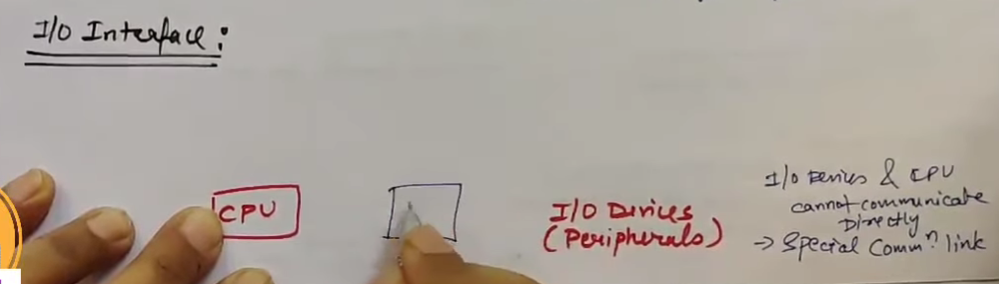 I/O Interface :
CPU
I/O Devices
(Peripherals)
I/O Devices & CPU
cannot communicate
Directly
→ Special Commn link